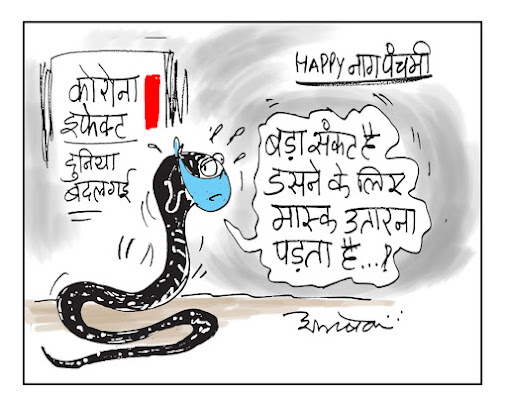 HAPPY नागपंचमी
कोरोना
इफेक्ट
दुनिया
बदलगई
बड़ा संकट है
डसने के लिए
मास्क उतारना
पड़ता है...!